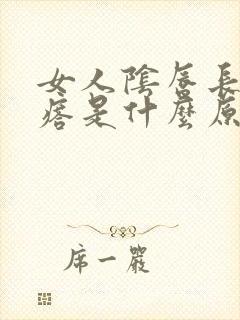 女人陰唇長
痞是什麼原
席一嚴